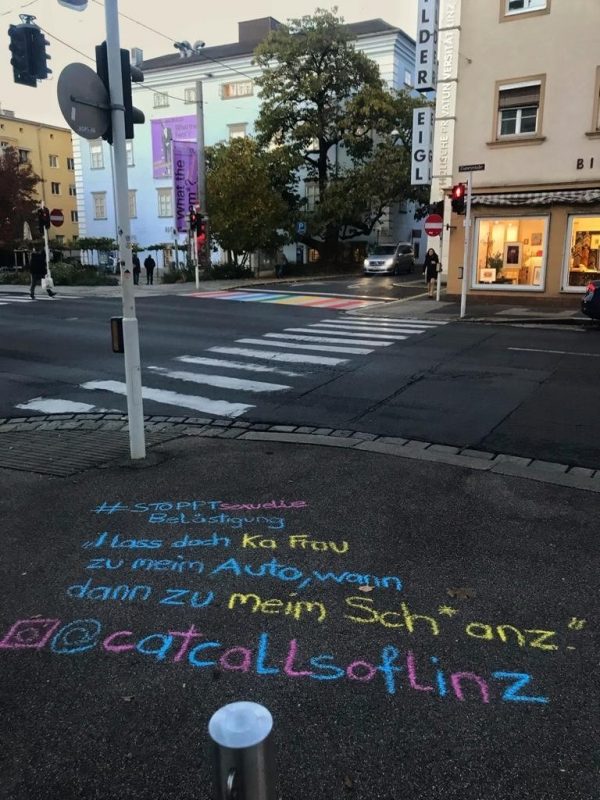 ILDER
EIGL
BI
what the
#STOPPT sexuelle
Belästigung
„I lass doch Ka Frau
zu meim Auto, wann
dann zu meim Sch*anz."
@catcallsoflinz